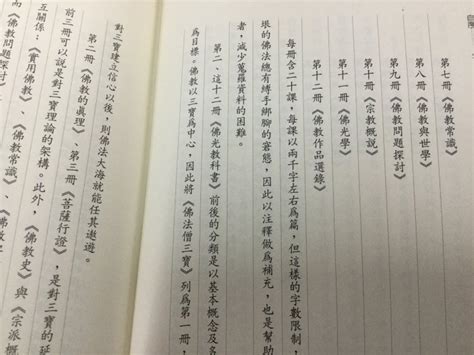 第七冊《佛教常識》
第八冊《佛教與世學》
第九冊《佛教問題探討》
第十冊《宗教概說》
第十一冊《佛光學》
第十二冊《佛教作品選錄》
每冊含二十課，每課以兩千字左右為篇，但這樣的字數限制，
垠的佛法總有縛手綁腳的窘態，因此以注釋做為補充，也是幫
者，減少蒐羅資料的困難。
第二、這十二冊《佛光教科書》前後的分類是以基本概念及多
為目標。佛教以三寶為中心，因此將《佛法僧三寶》列為第一冊，
對三寶建立信心以後，則佛法大海就能任其遨遊。
第二冊《佛教的真理》、第三冊《菩薩行證》，是對三寶的延
前三冊可以說是對三寶理論的架構。此外，《佛教史》與《宗派概
互關係：《實用佛教》、《佛教常識》、
問題探討》、《佛教